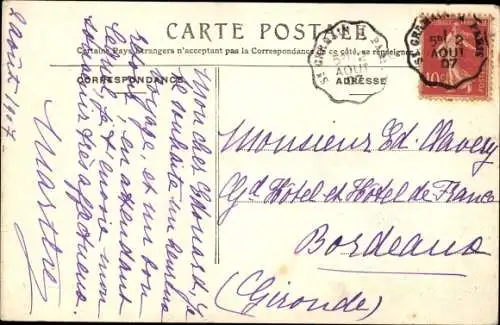 CARTE POSTALE
Certains Pays étrangers n'acceptant pas la Correspondance de ce côté, se renseigner
CORRESPONDANCE
ADRESSE
5E 2
AOUT
07
5E 2
AOUT
07
10c
2 Août 1907
Mon cher Edouard, je
te souhaite un heureux
voyage, et un bon
retour, en attendant
je t'envoie mon
souvenir très affectueux
Monsieur Ed.
Gd Hôtel et Hôtel de France
Bordeaux
(Gironde)